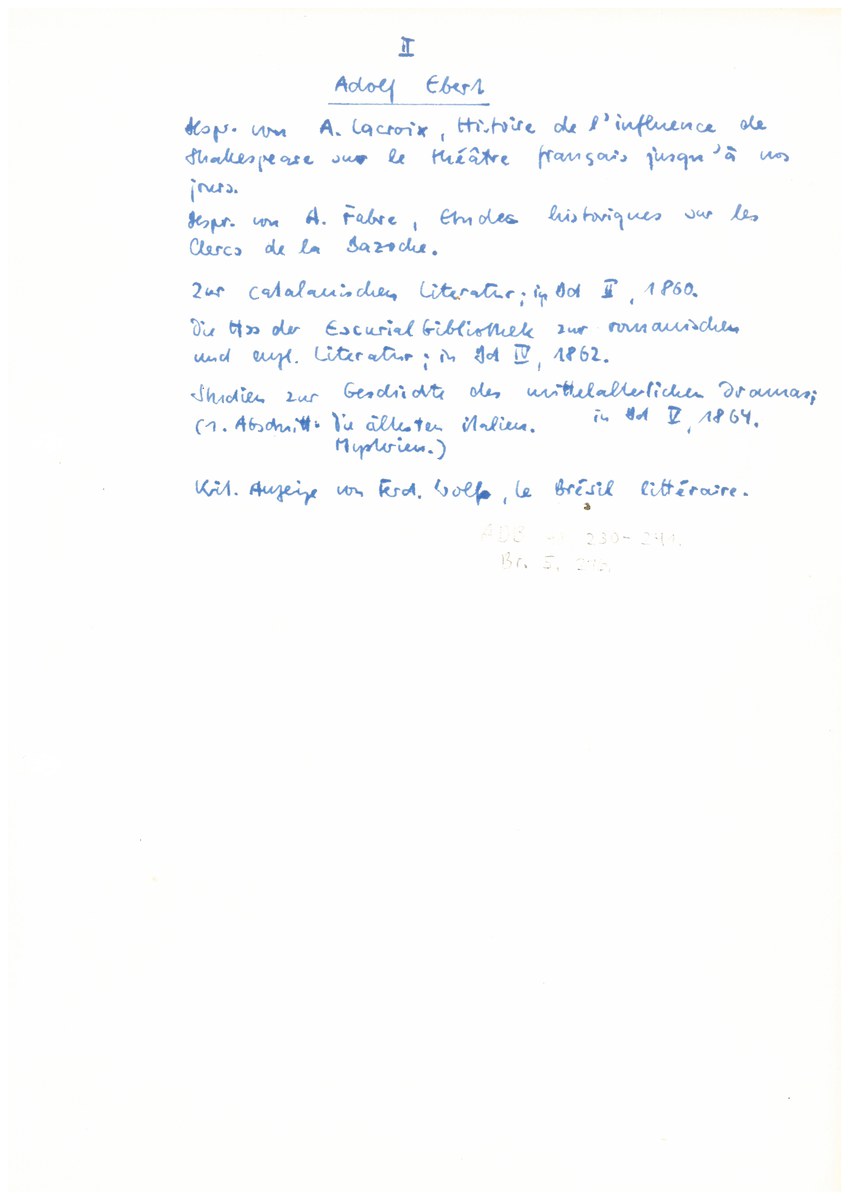 II
Adolf Ebert
Bespr. von A. Lacroix, Histoire de l'influence de
Shakespeare sur le théâtre français jusqu'à nos
jours.
Bespr. von A. Fabre, Etudes historiques sur les
Clercs de la Bazoche.
Zur catalanischen Literatur; in Bd II, 1860.
Die Hss der Escurialbibliothek zur romanischen
und engl. Literatur; in Bd IV, 1862.
Studien zur Geschichte des mittelalterlichen Dramas;
(1. Abschnitt: Die ältesten italien. in Bd V, 1864.
Mysterien.)
Krit. Anzeige von Ferd. Wolf, le Brésil littéraire.
ADB 230-241.
Br. S. 243.